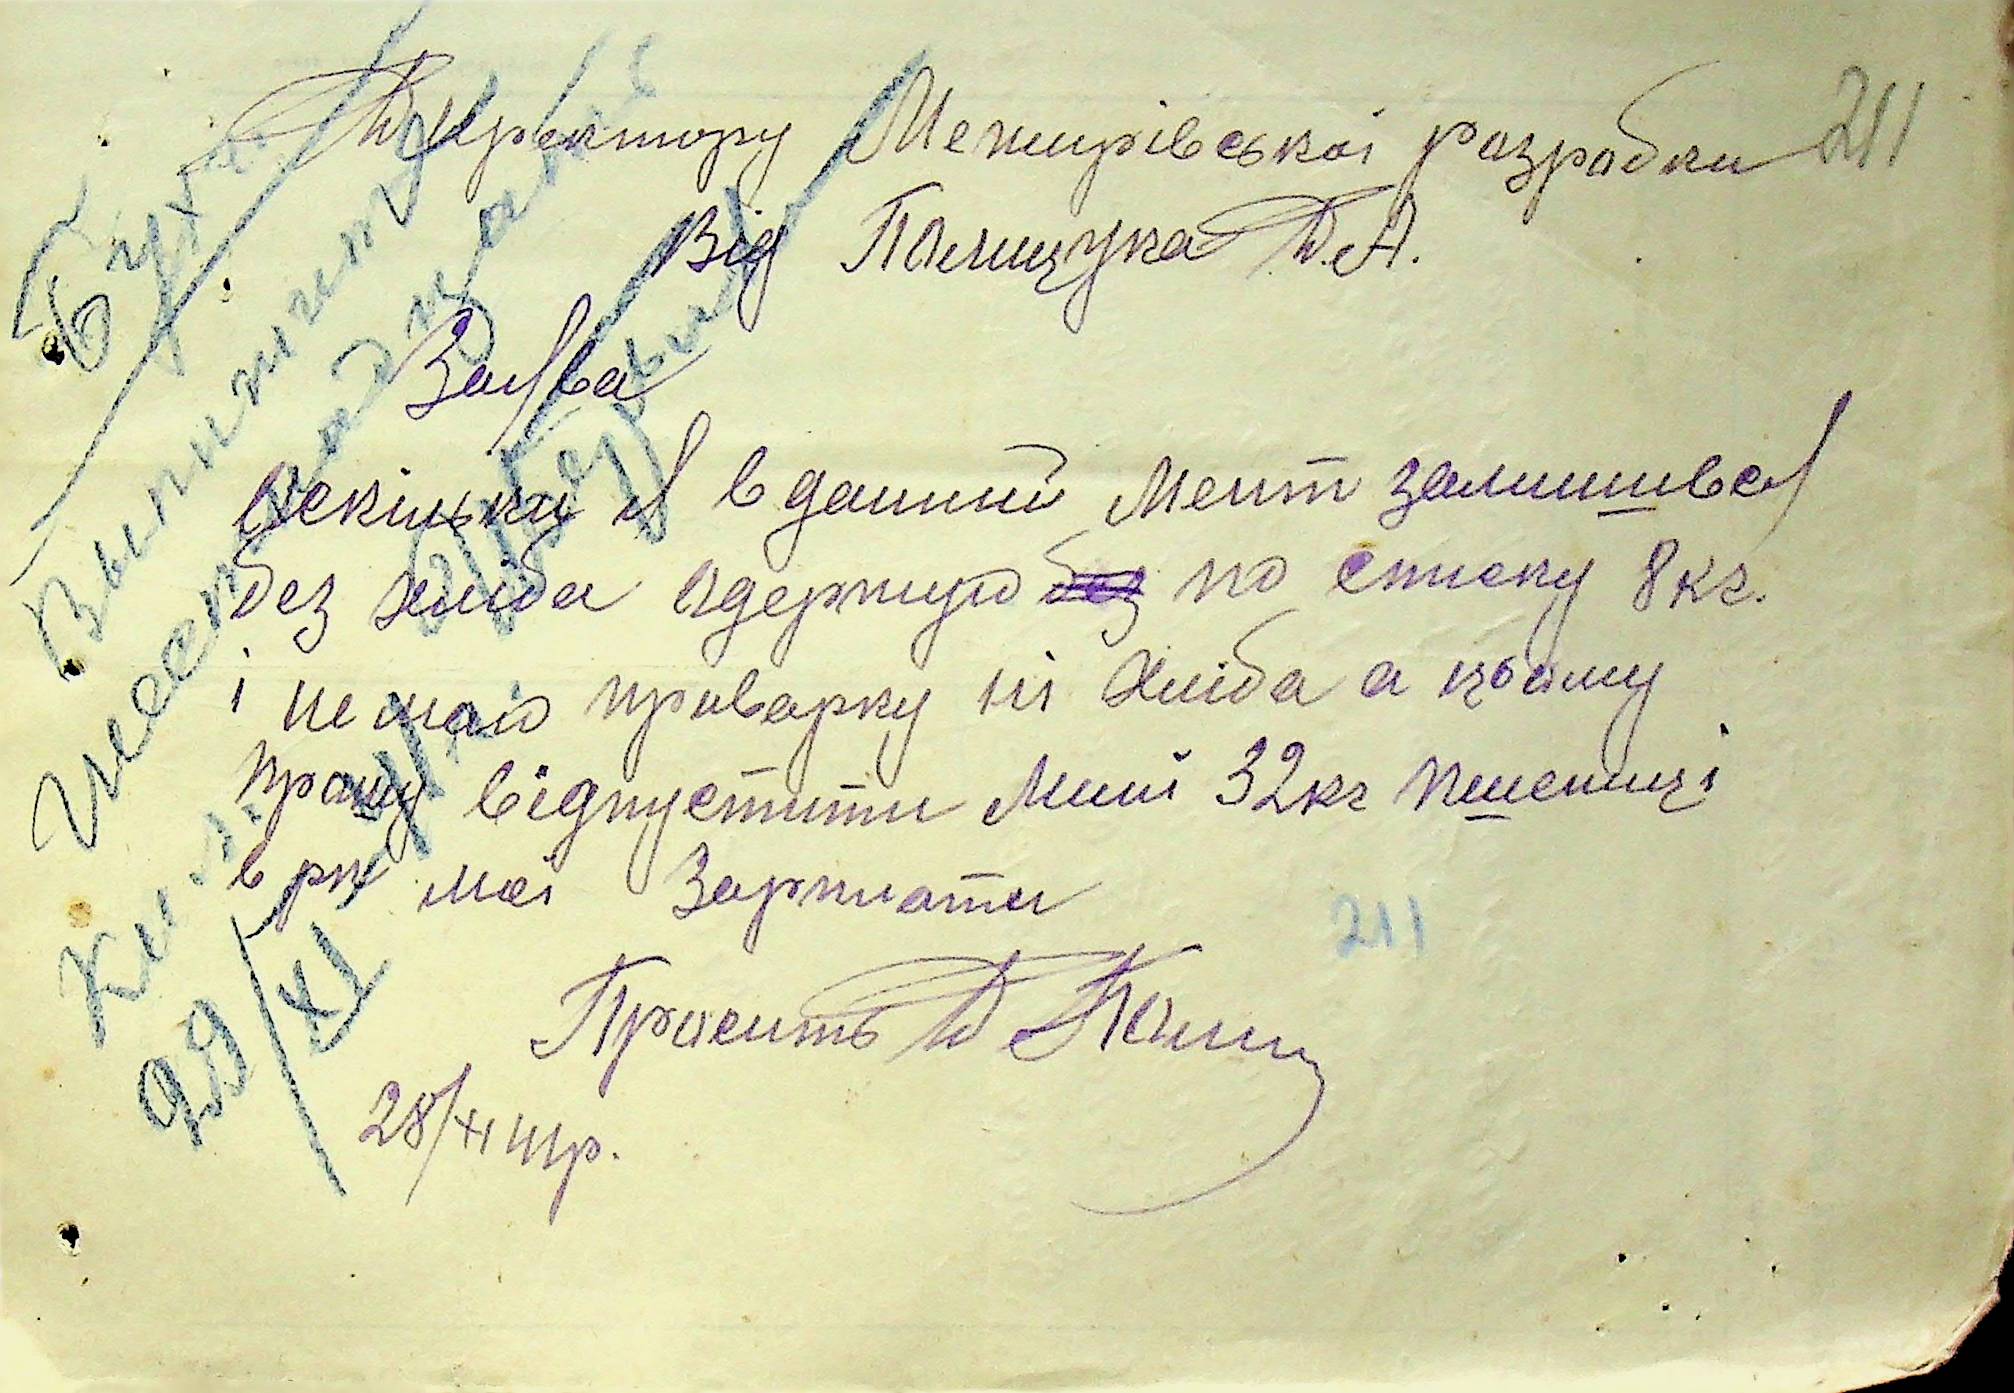 Директору Межирівської разработки 211
Від Полищука Д.А.
Заява
Оскільки я в данний мент залишився
без хліба одержую по списку 8 кг.
і не маю приварку ні хліба а цьому
прошу відпустити мині 32 кг пшениці
в рх моєї Зарплати
Просить Д Поли
28/XI
211
Бух.
Выпишите
Шестнадцать
Кил.
29/XI